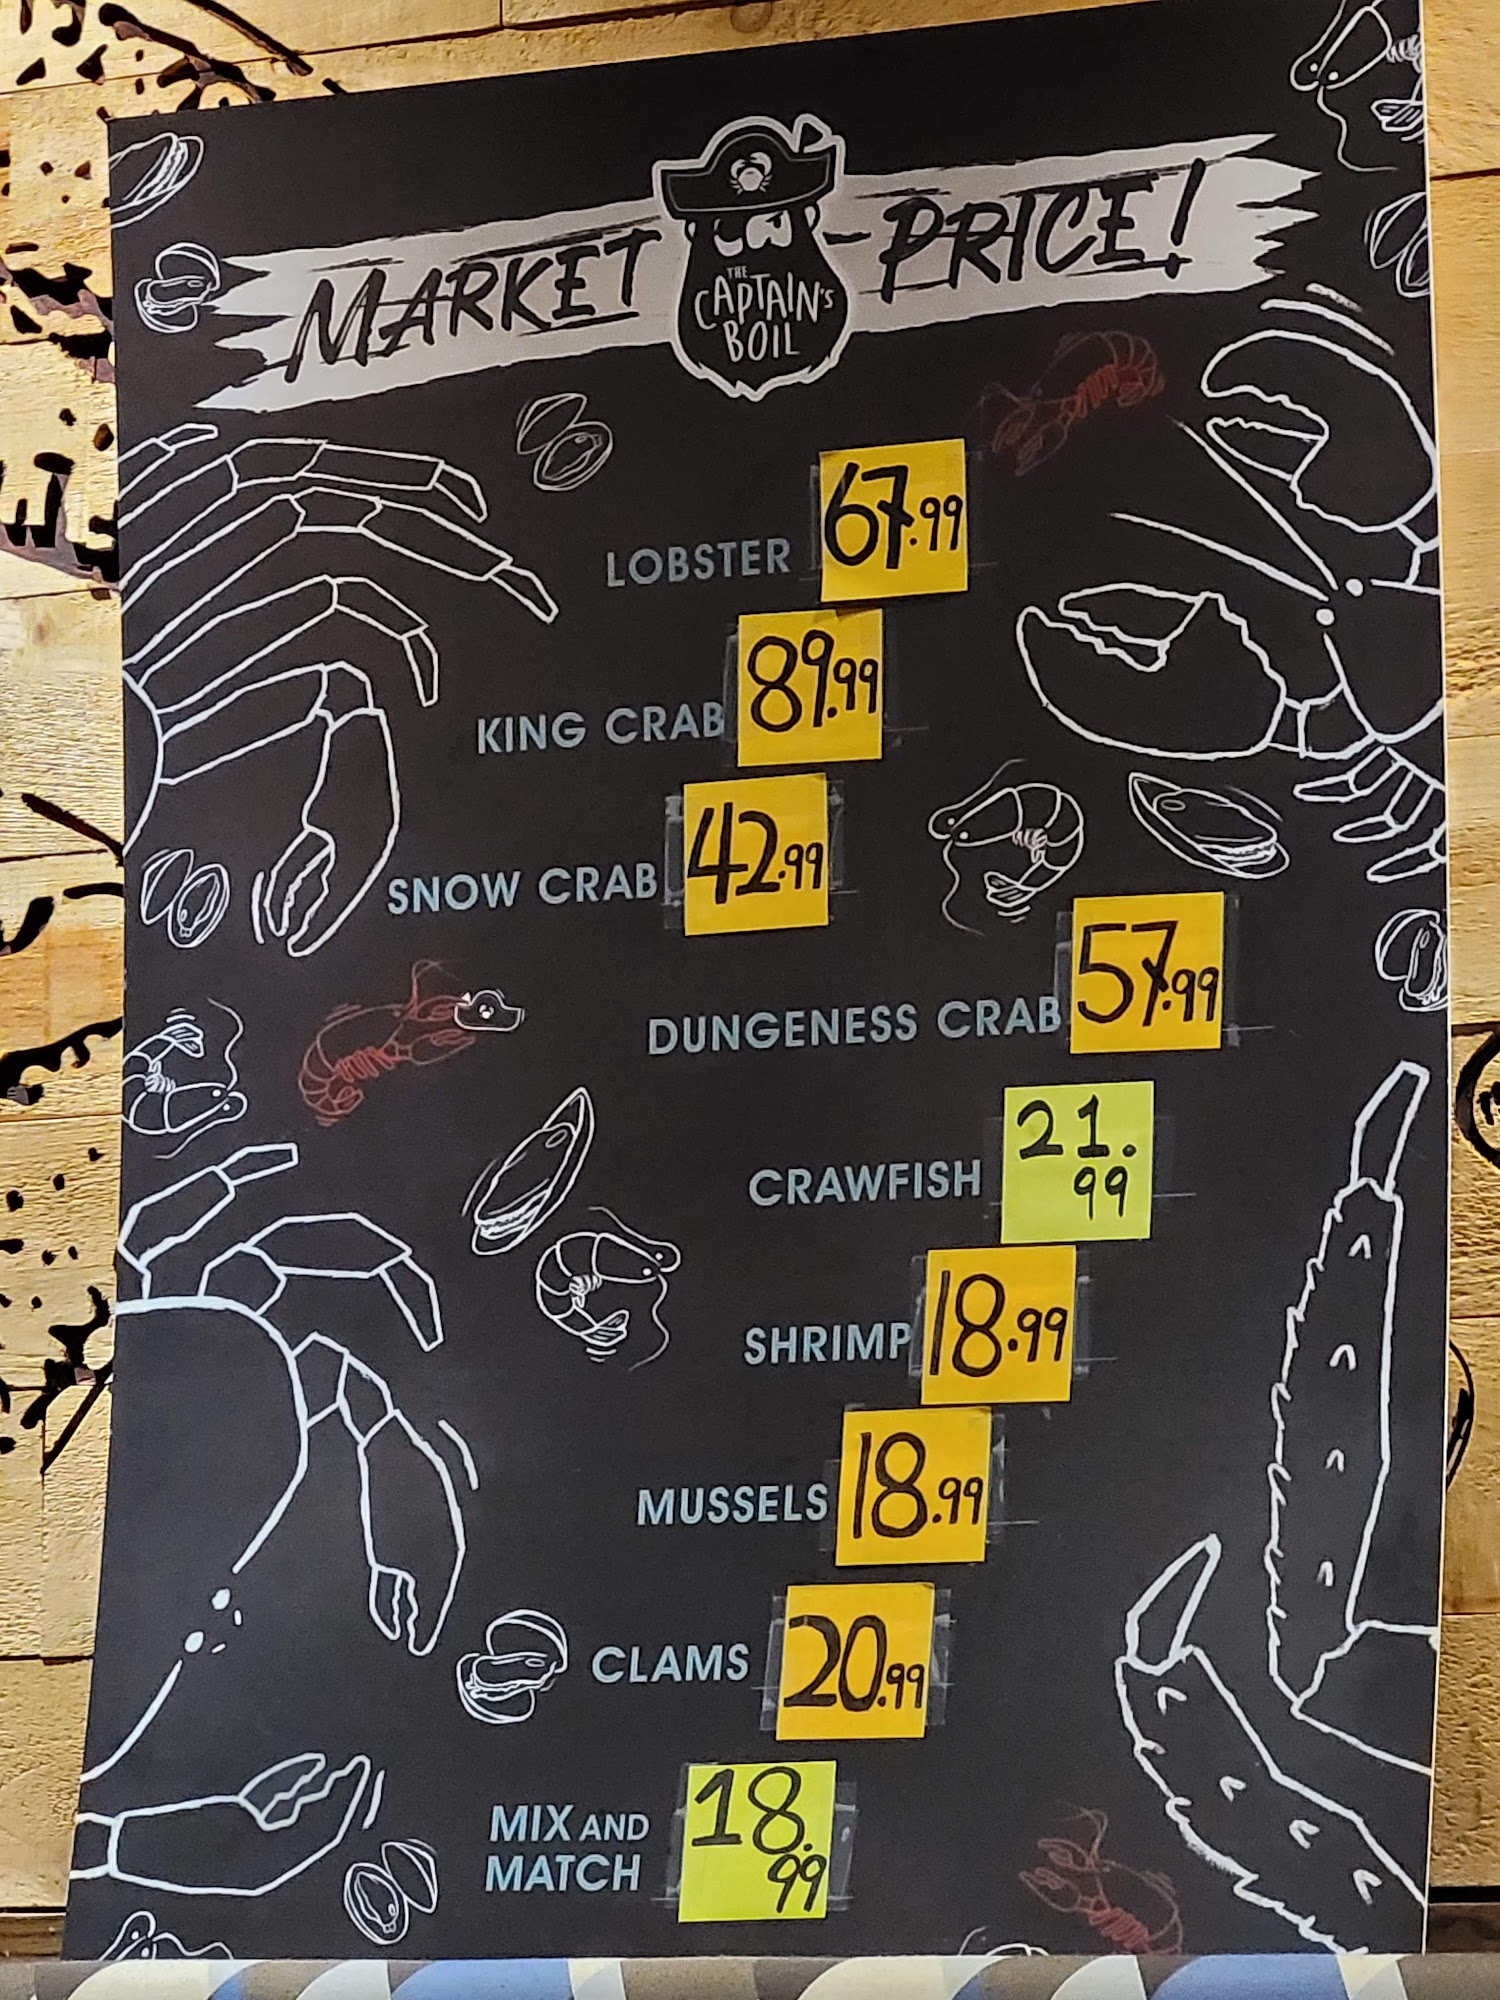 MARKET - PRICE!
THE
CAPTAIN'S
BOIL
LOBSTER 67.99
KING CRAB 89.99
SNOW CRAB 42.99
DUNGENESS CRAB 57.99
CRAWFISH 21.99
SHRIMP 18.99
MUSSELS 18.99
CLAMS 20.99
MIX AND
MATCH 18.99